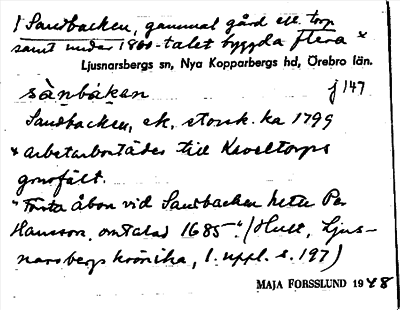 1 Sandbacken, gammal gård ell. torp
samt under 1800-talet byggda flera *
Ljusnarsbergs sn, Nya Kopparbergs hd, Örebro län.
sànbákan f 147
Sandbacken, ek. storsk. ka 1799
* arbetarbostäder till Kaveltorps
gruvfält.
"Första åbon vid Sandbacken hette Per
Hansson, omtalad 1685". (Hult, Ljus-
narsbergs krönika, 1. uppl. s. 197)
MAJA FORSSLUND 1948